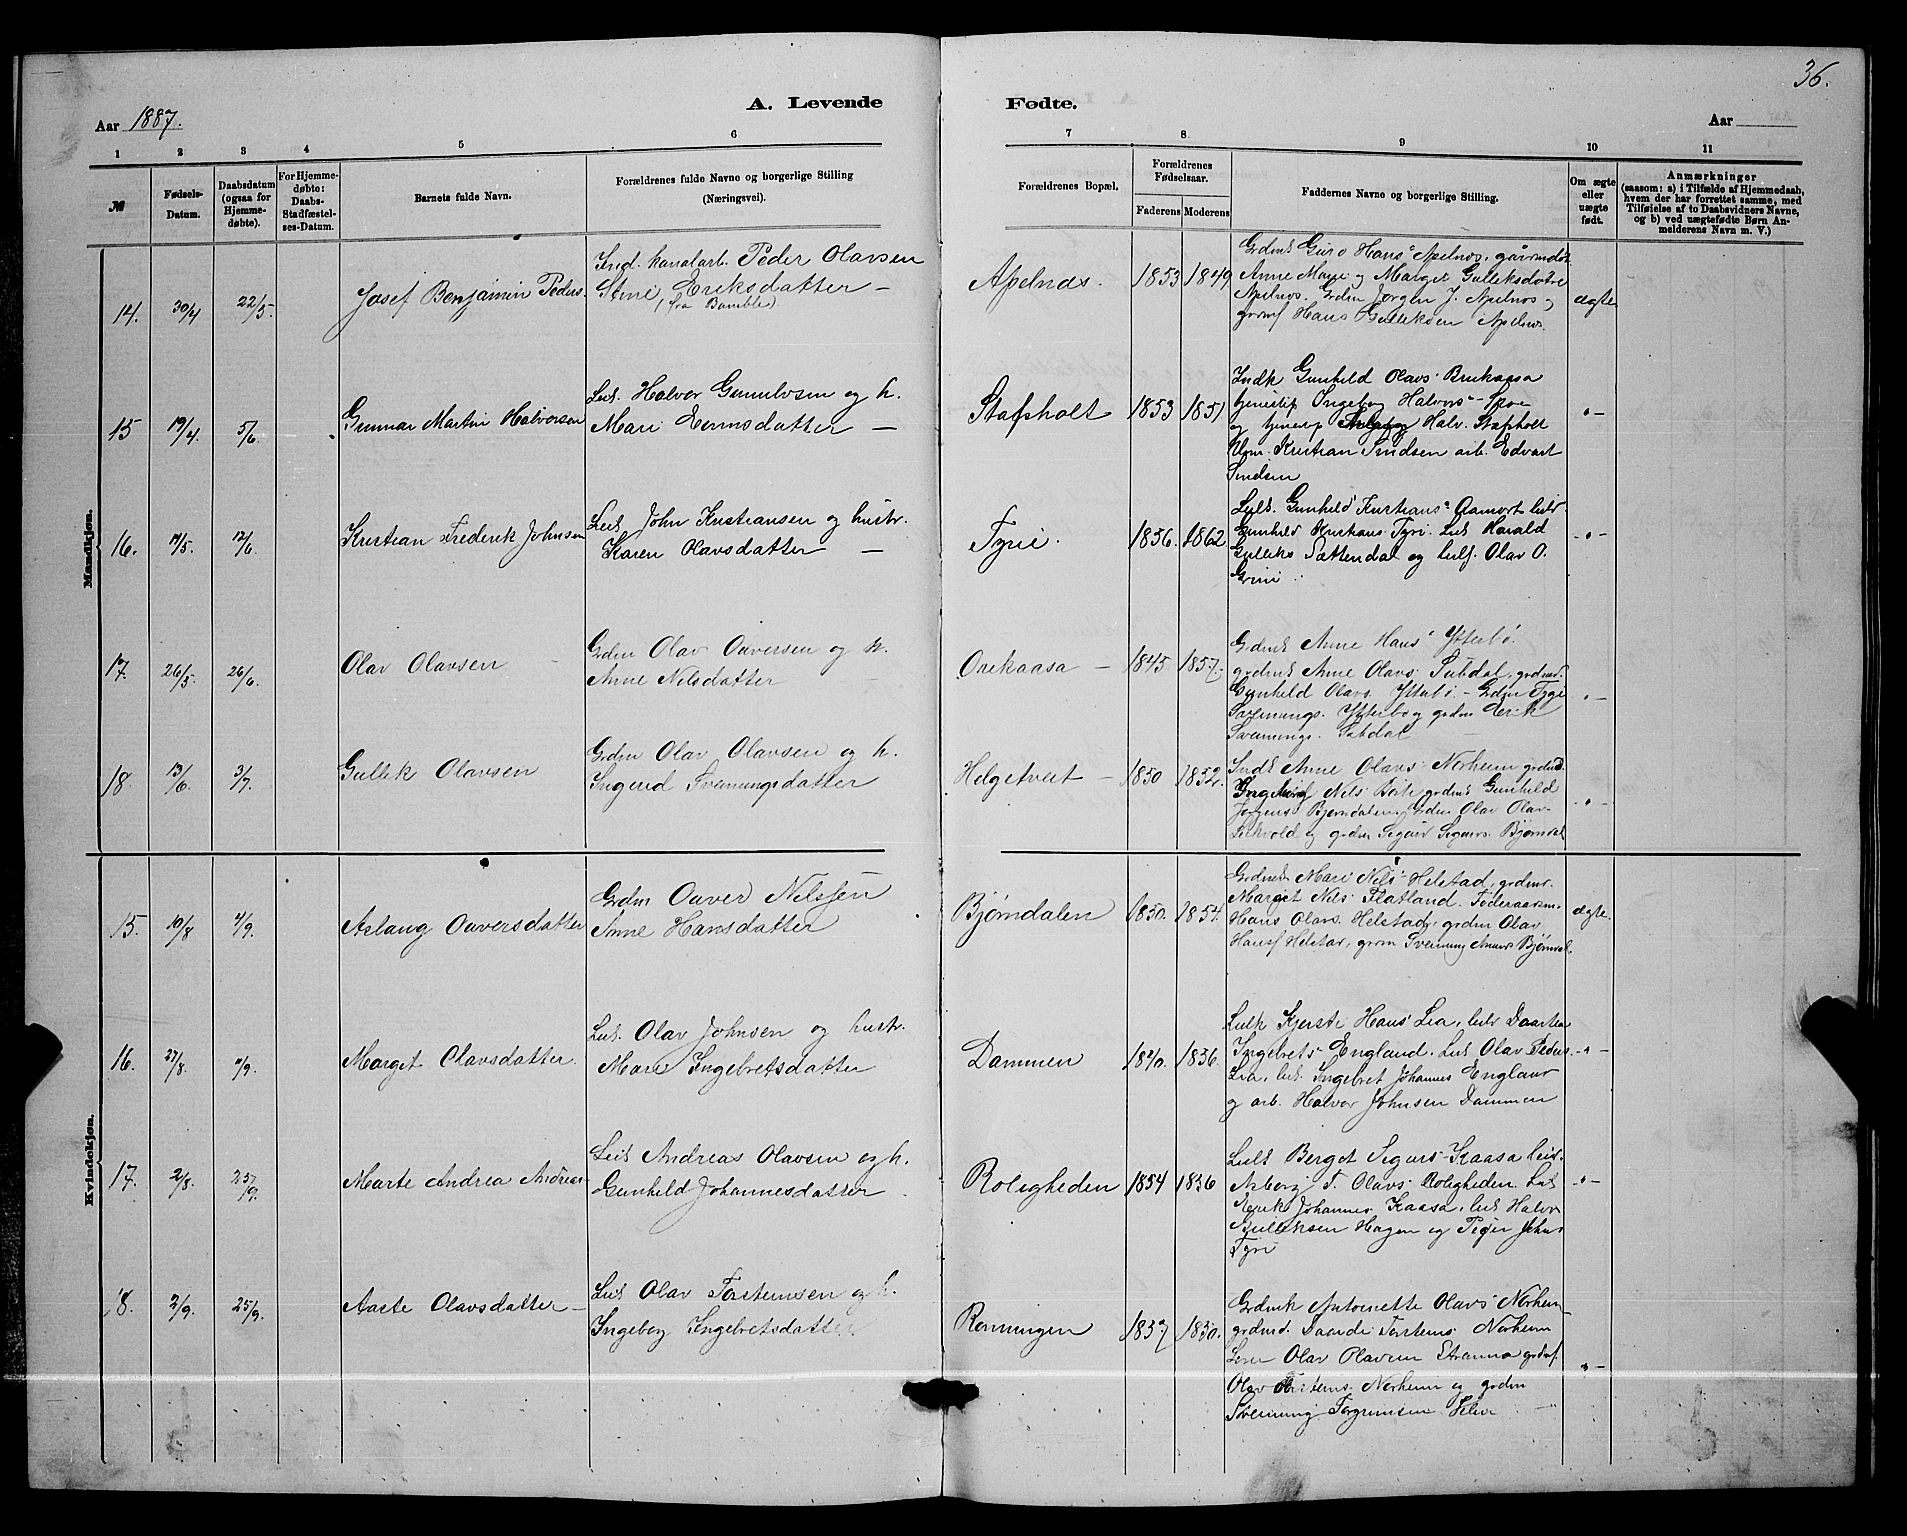 36.
A. Levende
Fødte.
Aar 1887.
Aar
1 2 3 4 5 6 7 8 9 10 11
№
Fødsels-Datum.
Daabsdatum (ogsaa for Hjemmedøbte).
For Hjemmedøbte: Daabs-Stadfæstelses-Datum.
Barnets fulde Navn.
Forældrenes fulde Navne og borgerlige Stilling (Næringsvei).
Forældrenes Bopæl.
Forældrenes Fødselsaar.
Faderens Moderens
Faddernes Navne og borgerlige Stilling.
Om ægte eller uægte født.
Anmærkninger
(saasom: a) i Tilfælde af Hjemmedaab, hvem der har forrettet samme, med Tilføielse af to Daabsvidners Navne, og b) ved uægtefødte Børn Anmelderens Navn m. V.)
Mandkjøn.
14. 30/4 22/5. Josef Benjamin Peders.
Ind. kanalarb. Peder Olavsen
Stine Eriksdatter –
(fra Bamble)
Apelnæs. 1853 1849
Grdmk Guro Hans' Apelnos, gaarmdøt
Anne Marie og Marget Gulleksdøtre
Apelnos. Grdm Jørgen J. Apelnos og
grdmf Hans Gulleksen Apelnos.
ægte
15 19/4 5/6. Gunnar Martin Halvorsen
Leil. Halvor Gunulvsen og h.
Mari Evensdatter –
Stafsholt 1853 1851
Indk Gunhild Olavs' Brukaasa
tjenestep Ingeborg Halvors'
og tjenestp Halv. Stafsholt
Ugm. Kristian Sindsen arb. Edvart
Sindsen
–"–
16. 11/5. 12/6. Kristian Frederik Johnsen
Leil. John Kristiansen og hustr.
Karen Olavsdatter –
Tyrie. 1856. 1862
Leilk. Gunhild Kristians' Aamort leild
Gunhild Kristians Tyri. Leil Harald
Gulleks Sættendal og leilf. Olav O.
Grini.
–"–
17. 26/5 26/6. Olav Olavsen
Grdm Olav Ouversen og h.
Anne Nilsdatter
Orekaasa – 1845 1857.
Grdmk Anne Hans' Ytterbø.
grdmk Anne Olavs' Subdal, grdmd.
Gunhild Olavs. Ytterbø – Grdm Tyge
Svenungs. Ytterbø og grdm Erik
Svenungs. Subdal –
–"–
18. 13/6 3/7. Gullik Olavsen
Grdm Olav Olavsen og h.
Ingerid Svenungsdatter
Helgetveit – 1850 1852.
Indk Anne Olavs' Norheim grdmd.
Ingeborg Nils' Bøte grdmk Gunhild
Jørgens' Bjørndalen. Grdm Olav Olav
og grdm Sigurd Sigurs. Bjørndal
–"–
Kvindekjøn.
15. 10/8 4/9. Aslaug Ouversdatter
Grdm Ouver Nilssen
Anne Hansdatter
Bjørndalen 1850. 1854.
Grdmk Mari Nils' Helstad, grdmk.
Marget Nils' Flatland. Føderaasm.
Hans Olavs. Helstad, grdm Olav
Hansf Helstad, grdm Svenung Bjørndal.
ægte
16. 27/8. 11/9. Marget Olavsdatter.
Leil. Olav Johnsen og hustr.
Mari Ingebretsdatter
Dammen 1840. 1836.
Leilk Kjersti Hans' Lia, leild Daartea
Ingebrets England. Leil Olav Peders.
Lia, leil. Ingebret Johannes England
og arb. Halvor Johnsen Dammen
–"–
17. 2/8. 25/9. Marte Andrea Andreas-
Leil Andreas Olavsen og h.
Gunhild Johannesdatter
Roligheden 1854 1856
Leilk Berget Sigurs' Kaasa leild.
Asborg T. Olavs' Roligheden. Leil
Erik Johannes Kaasa, leil Halvor
Gulleksen Hagen og Peder Johns
Tyri
–"–
18. 2/9. 25/9. Aaste Olavsdatter –
Leil Olav Torsteinsen og h.
Ingebog Ingebretsdatter
Rønningen 1857 1850.
Grdmk Antoinette Olavs' Norheim
grdmd. Daarde Torsteins' Norheim
Olav Olavsen Stranna grdmf.
Olav Torsteins. Norheim og grdm
Svenung Torgrimsen
–"–